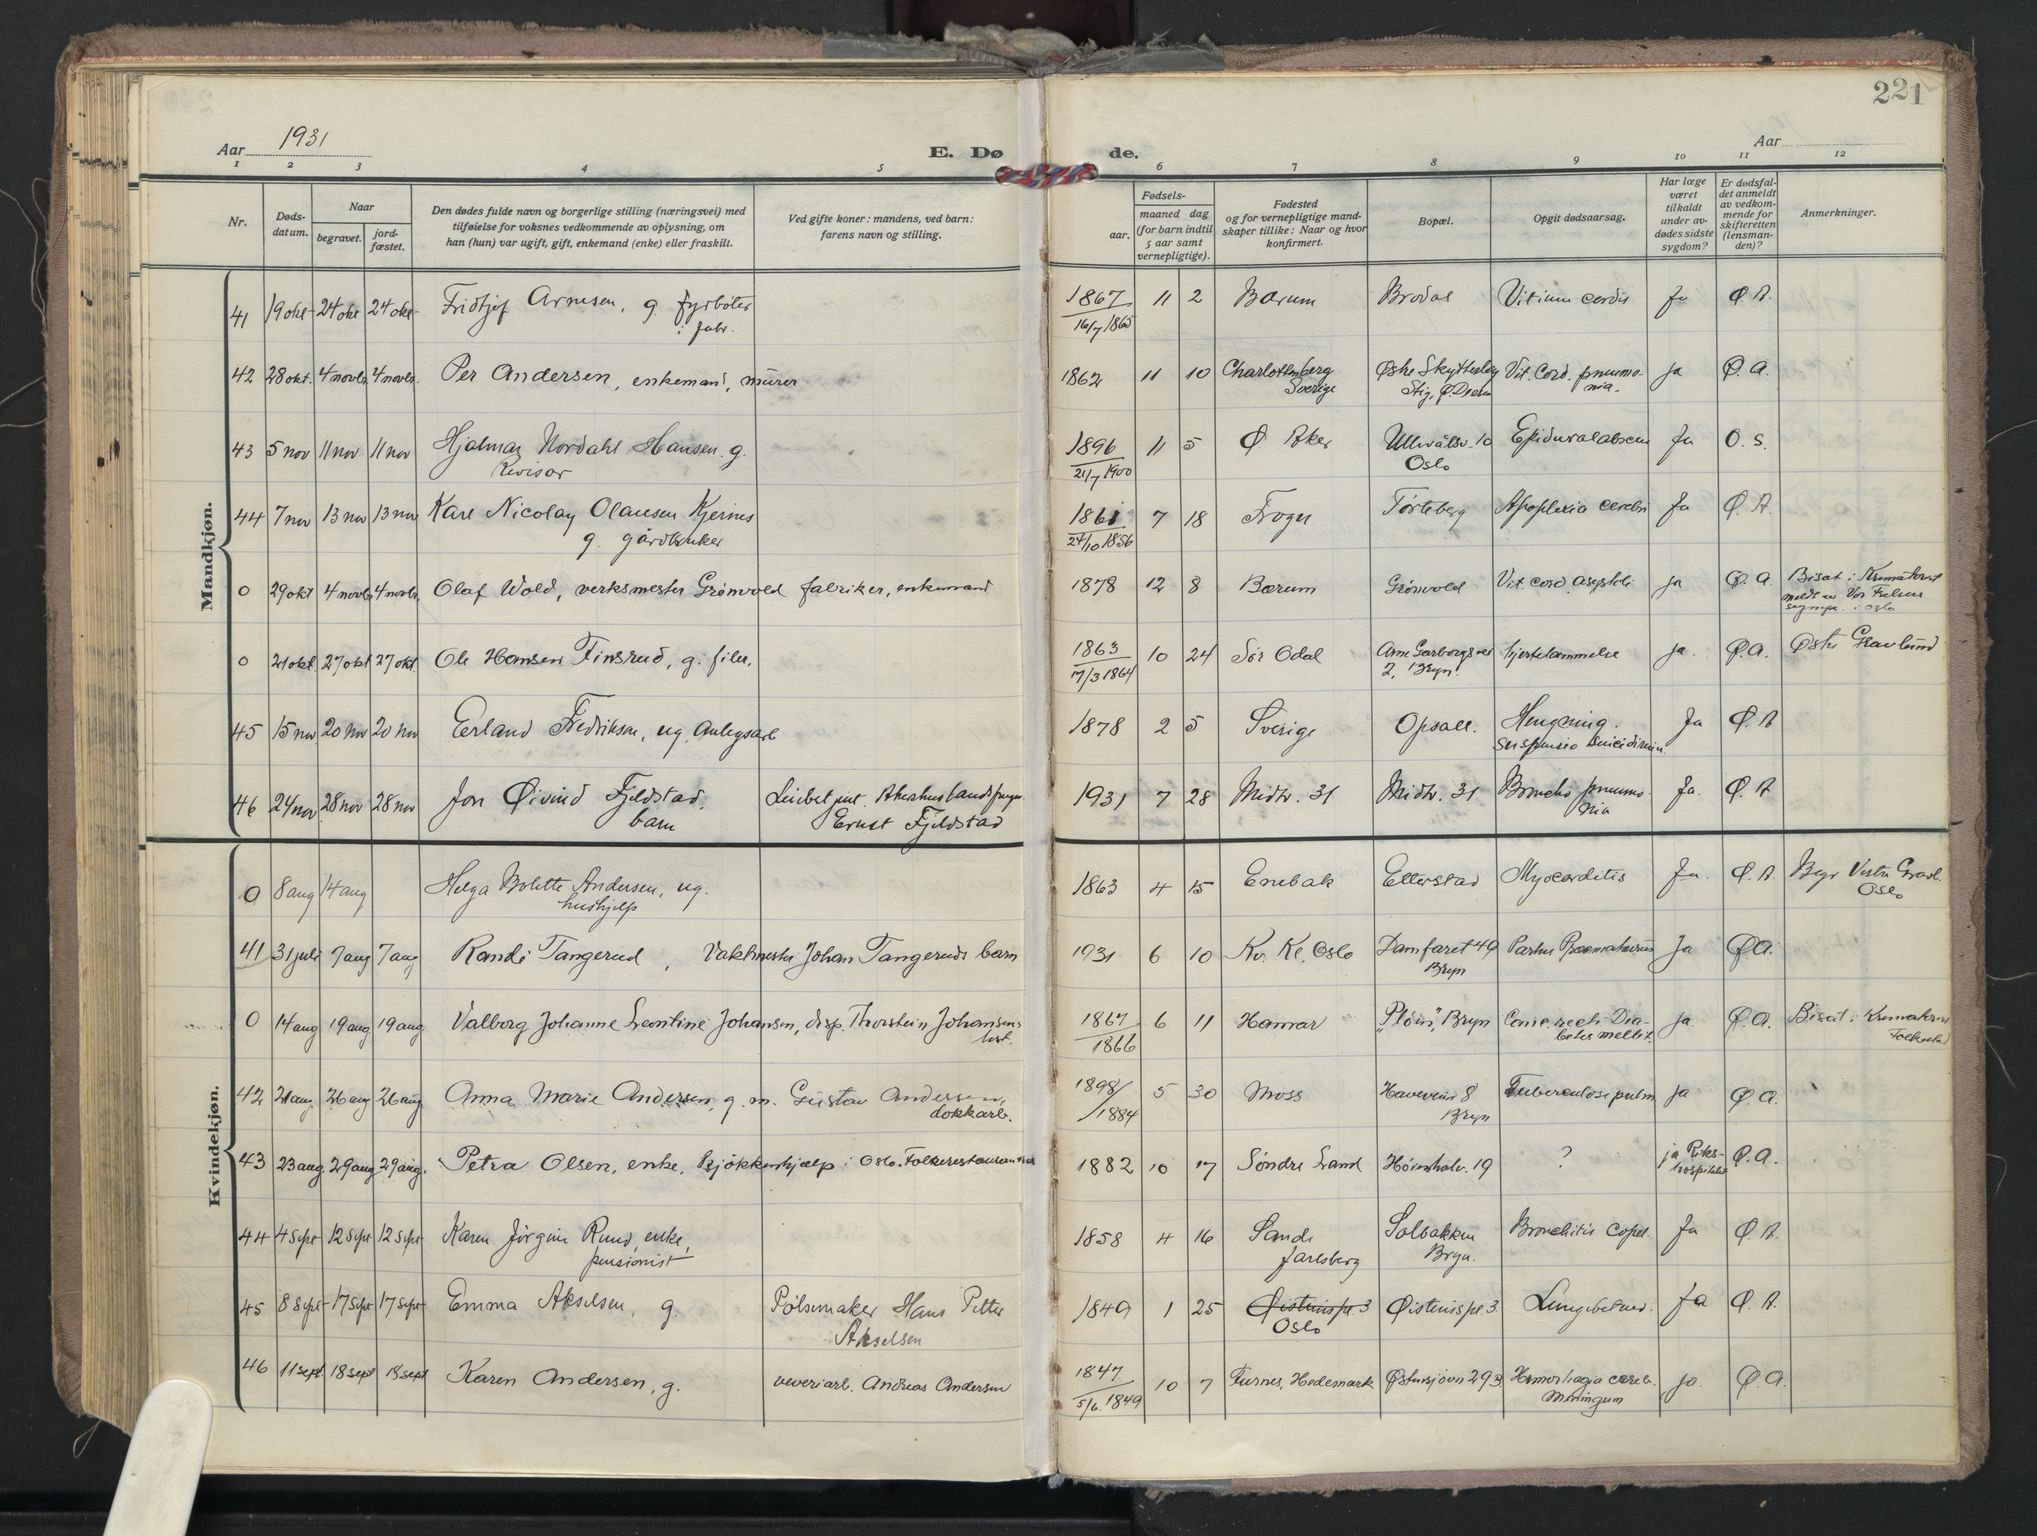 221
Aar 1931
E. Dø de.
Aar
1 2 3 4 5 6 7 8 9 10 11 12
Nr.
Døds-
datum.
Naar
begravet.
jord-
fæstet.
Den dødes fulde navn og borgerlige stilling (næringsvei) med
tilføielse for voksnes vedkommende av oplysning, om
han (hun) var ugift, gift, enkemand (enke) eller fraskilt.
Ved gifte koner: mandens, ved barn:
farens navn og stilling.
Fødsels-
aar.
maaned dag
(for barn indtil
5 aar samt
vernepligtige).
Fødested
og for vernepligtige mand-
skaper tillike: Naar og hvor
konfirmert.
Bopæl.
Opgit dødsaarsag.
Har læge
været
tilkaldt
under av-
dødes sidste
sygdom?
Er dødsfal-
det anmeldt
av vedkom-
mende for
skifteretten
(lensman-
den)?
Anmerkninger.
Mandkjøn.
41 19 okt 24 okt 24 okt Fridtjof Arnesen, g fyrbøter 1867 11 2 Bærum Brodal Vitium cordis Ja Ø. A.
i fabr. 16/7 1865
42 28 okt. 4 novbr. 4 novbr. Per Andersen, enkemand, murer 1862 11 10 Charlottenberg Østre Skyttervei Vit. Cord. pneumo- ja Ø. A.
Sverige nia.
43 5 nov 11 nov 11 nov Hjalmar Nordahl Hansen. g. 1896 11 5 Ø Aker Ullevålsv. 10 Epiduralabscess Ja O. S.
Revisor 21/7 1900 Oslo
44 7 nov 13 nov 13 nov Karl Nicolay Olausen Kjernes 1861 7 18 Frogn Tørteberg Apoplexia cerebri Ja Ø. A.
g. gårdbruker 24/10 1856
0 29 okt 4 novbr 4 novbr. Olaf Wold, verksmester Grønvold fabriker, enkemand 1878 12 8 Bærum Grønvold Vit. cord. ja Ø. A. Bisat i Krematoriet
meldt av Vor Frelsers
i Oslo
0 21 okt. 27 okt 27 okt Ole Hansen Finsrud, g. filer. 1863 10 24 Sør Odal Arne Garborgs vei hjertelammelse ja. Ø. A. Østre Gravlund
7/3 1864 2, Bryn.
45 15 nov 20 nov 20 nov Erland Fredriksen, ug. Anlegsarb 1878 2 5 Sverige Opsall. Hengning. Ja Ø. A
suspensio suicidium.
46 24 nov 28 nov 28 nov Jon Øivind Fjeldstad, 1931 7 28 Midtv. 31 Midtv. 31 Broncho pneumo- Ja. Ø. A
barn Ernst Fjeldstad nia
Kvindekjøn.
0 8 aug 14 aug Helga Bolette Andersen, ug. 1863 4 15 Enebak Etterstad Myocarditis Ja. Ø. A. Begr Vestre Gravl.
hushjelp Oslo
41 31 juli 7 aug 7 aug Randi Tangerud, Vaktmester Johan Tangeruds barn 1931 6 10 Kv. Kl. Oslo Damfaret 49 Partus Præmaturus Ja Ø A.
Bryn
0 14 aug 19 aug 19 aug Valborg Johanne Leontine Johansen, disp. Thorstein Johansens 1867 6 11 Hamar "Pløin", Bryn Canc. recti Dia- ja. Ø. A. Bisat i Krematoriet
hust. 1866 betes mellit.
42 21 aug. 26 aug 26 aug Anna Marie Andersen, g. m. Gustav Andersen, 1898/ 5 30 Moss Haveveien 8 Tuberculose pulm ja Ø. A.
dokkarb. /1884 Bryn
43 23 aug. 29 aug 29 aug. Petra Olsen, enke, kjøkkenhjælp i Oslo Folkerestauranter 1882 10 17 Søndre Land 19 ? ja Riks- Ø. A.
hospitalet
44 4 sept 12 sept 12 sept Karen Jørgine Ruud, enke, 1858 4 16 Sande Solbakken Bronchitis Ja Ø. A.
pensionist Jarlsberg Bryn.
45 8 sept 17 sept 17 sept Emma Akselsen, g. Pølsemaker Hans Petter 1849 1 25 Øistensjøv. 3 Øistensjøv. 3 Lungebetend. Ja Ø. A.
Akselsen Oslo
46 11 sept. 18 sept 18 sept Karen Andersen, g. veveriarb. Andreas Andersen 1847 10 7 Furnes, Hedemark Østensjøvn 293 Hemorhagia cereb. ja. Ø. A.
5/6. 1849 Meningum